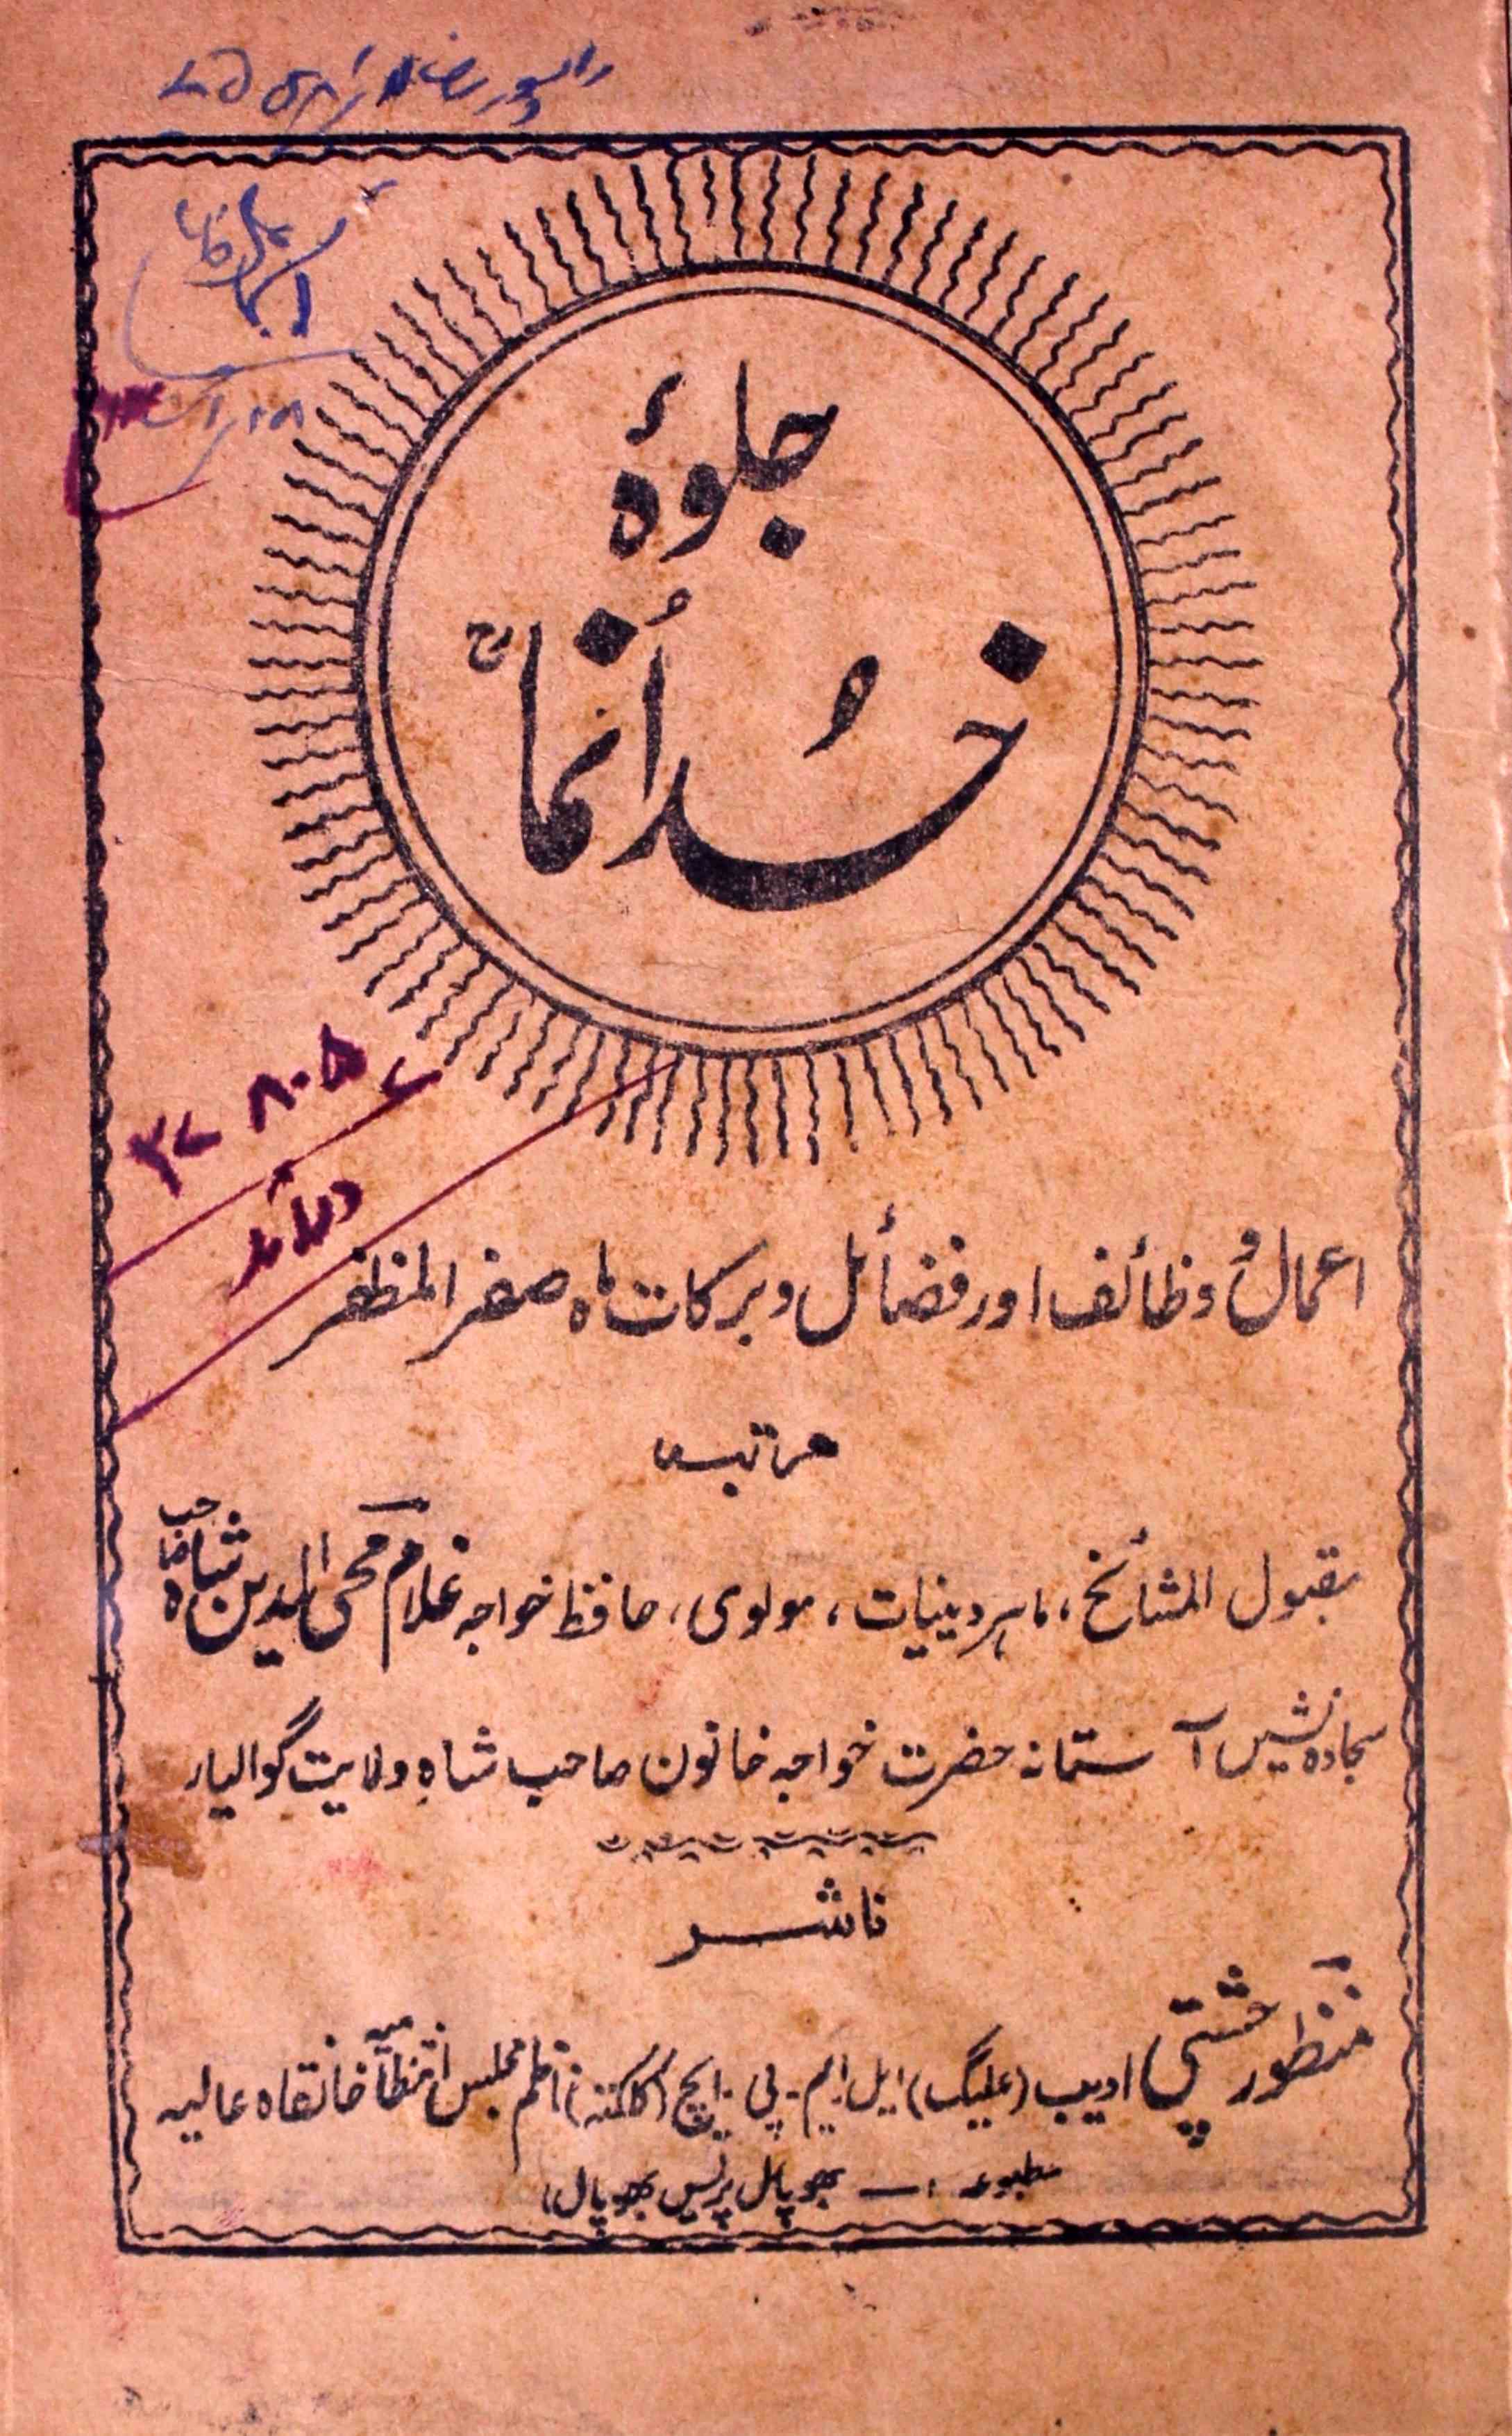 جلوۂ
خُدانُما رح
۸۰۵
اعمال و وظائف اور فضائل و برکات ماہ صفر المظفر
مرتبہ
مقبول المشائخ، ماہر دینیات، مولوی، حافظ خواجہ غلام محی الدین شاہ صاحب
سجادہ نشیں آستانہ حضرت خواجہ خانون صاحب شاہِ ولایت گوالیار
ناشر
منظور چشتی ادیب (علیگ) ایل۔ایم۔پی۔ایچ (کلکتہ) ناظم مجلس انتظامیہ خانقاہ عالیہ
مطبوعہ :— بھوپال پریس بھوپال،